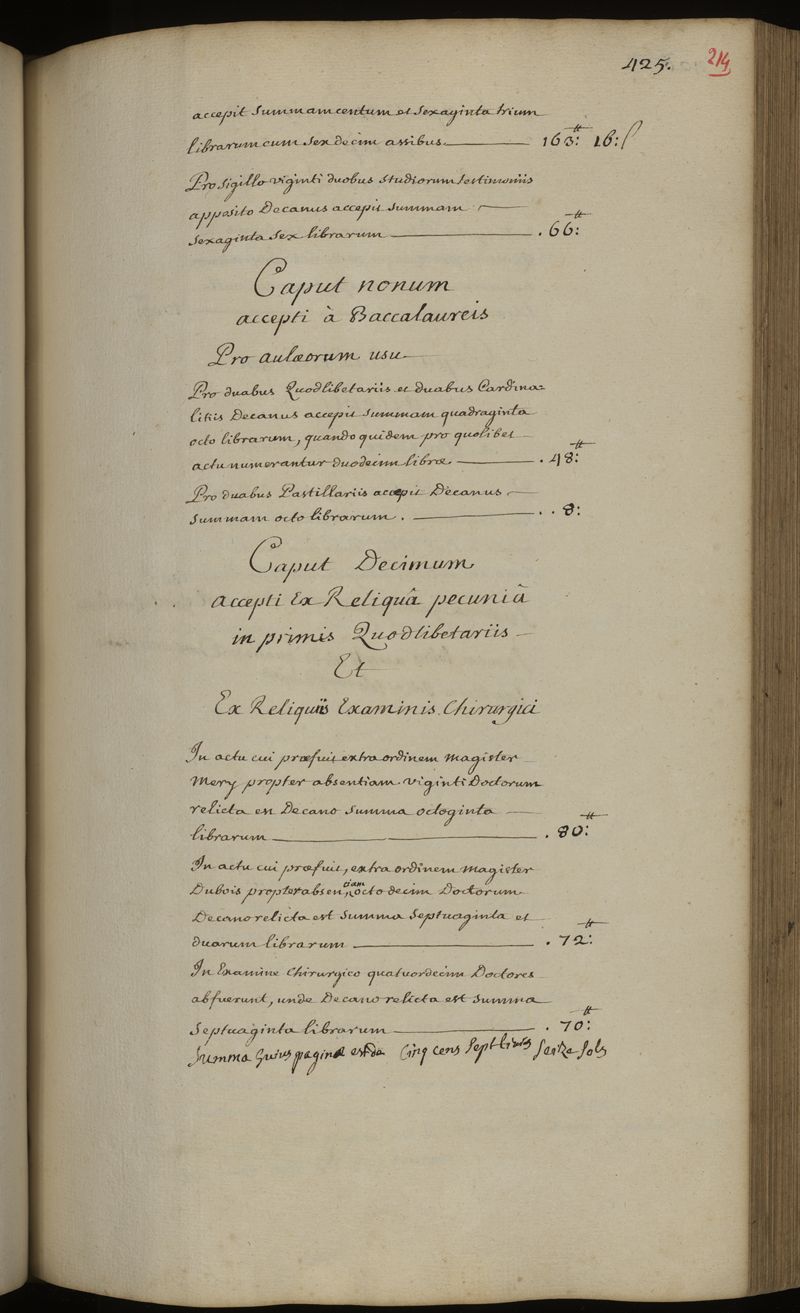 425. 214
accepit Summam centum et Sexaginta trium
librarum cum Sex decim assibus. 163: 16: ſ
Pro Sigillo viginti duobus Studiorum testimoniis
apposito Decanus accepit Summam
Sexaginta Sex librarum . 66:
Caput nonum
accepti à Baccalaureis
Pro aulæorum usu
Pro duabus Quodlibetariis et duabus Cardina-
litiis Decanus accepit Summam quadraginta
octo librarum, quando quidem pro quolibet
actu numerantur duodecim libræ. . 48:
Pro duabus Pastillariis accepit Decanus
Summam octo librarum . . . 8:
Caput Decimum
accepti Ex Reliquâ pecuniâ
in primis Quodlibetariis
Et
Ex Reliquiis Examinis Chirurgici
In actu cui præfuit extra ordinem Magister
Mery propter absentiam viginti Doctorum
relicta est Decano Summa octoginta
librarum . 80:
In actu cui præfuit, extra ordinem Magister
Dubois propter absentiam octo decim Doctorum
Decano relicta est Summa Septuaginta et
duarum librarum . 72:
In Examine Chirurgico quatuordecim Doctores
abfuerunt, unde Decano relicta est Summa
Septuaginta librarum . 70:
Summa huius paginæ est de Cinq cens Sept livres Seize Sols